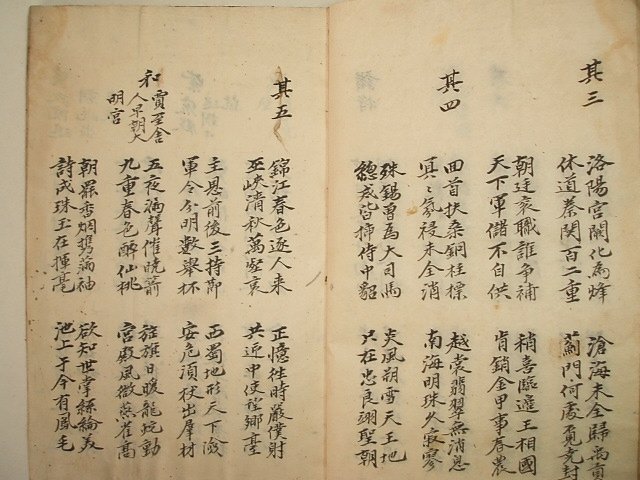 其三
洛陽宮闕化為烽
休道秦関百二重
滄海未全歸禹貢
薊門何處覓堯封
朝廷袞職誰爭補
天下軍儲不自供
稍喜臨邊王相國
肯銷金甲事春農
其四
回首扶桒銅柱標
冥〻氛祲未全消
越裳翡翠無消息
南海明珠久寂寥
殊錫曾為大司馬
總戎皆插侍中貂
炎風朔雪天王地
只在忠良翊聖朝
其五
錦江春色逐人来
巫峽清秋萬壑哀
正憶往時嚴僕射
共迎中使望鄉臺
主恩前後三持節
軍令分明數舉杯
西蜀地形天下險
安危須杖出羣材
和賈至舍
人早朝大
明宮
五夜漏聲催曉箭
九重春色醉仙桃
旌旗日暖龍蛇動
宮殿風微燕雀高
朝罷香烟携滿袖
詩成珠玉在揮毫
欲知世掌絲綸美
池上于今有鳳毛